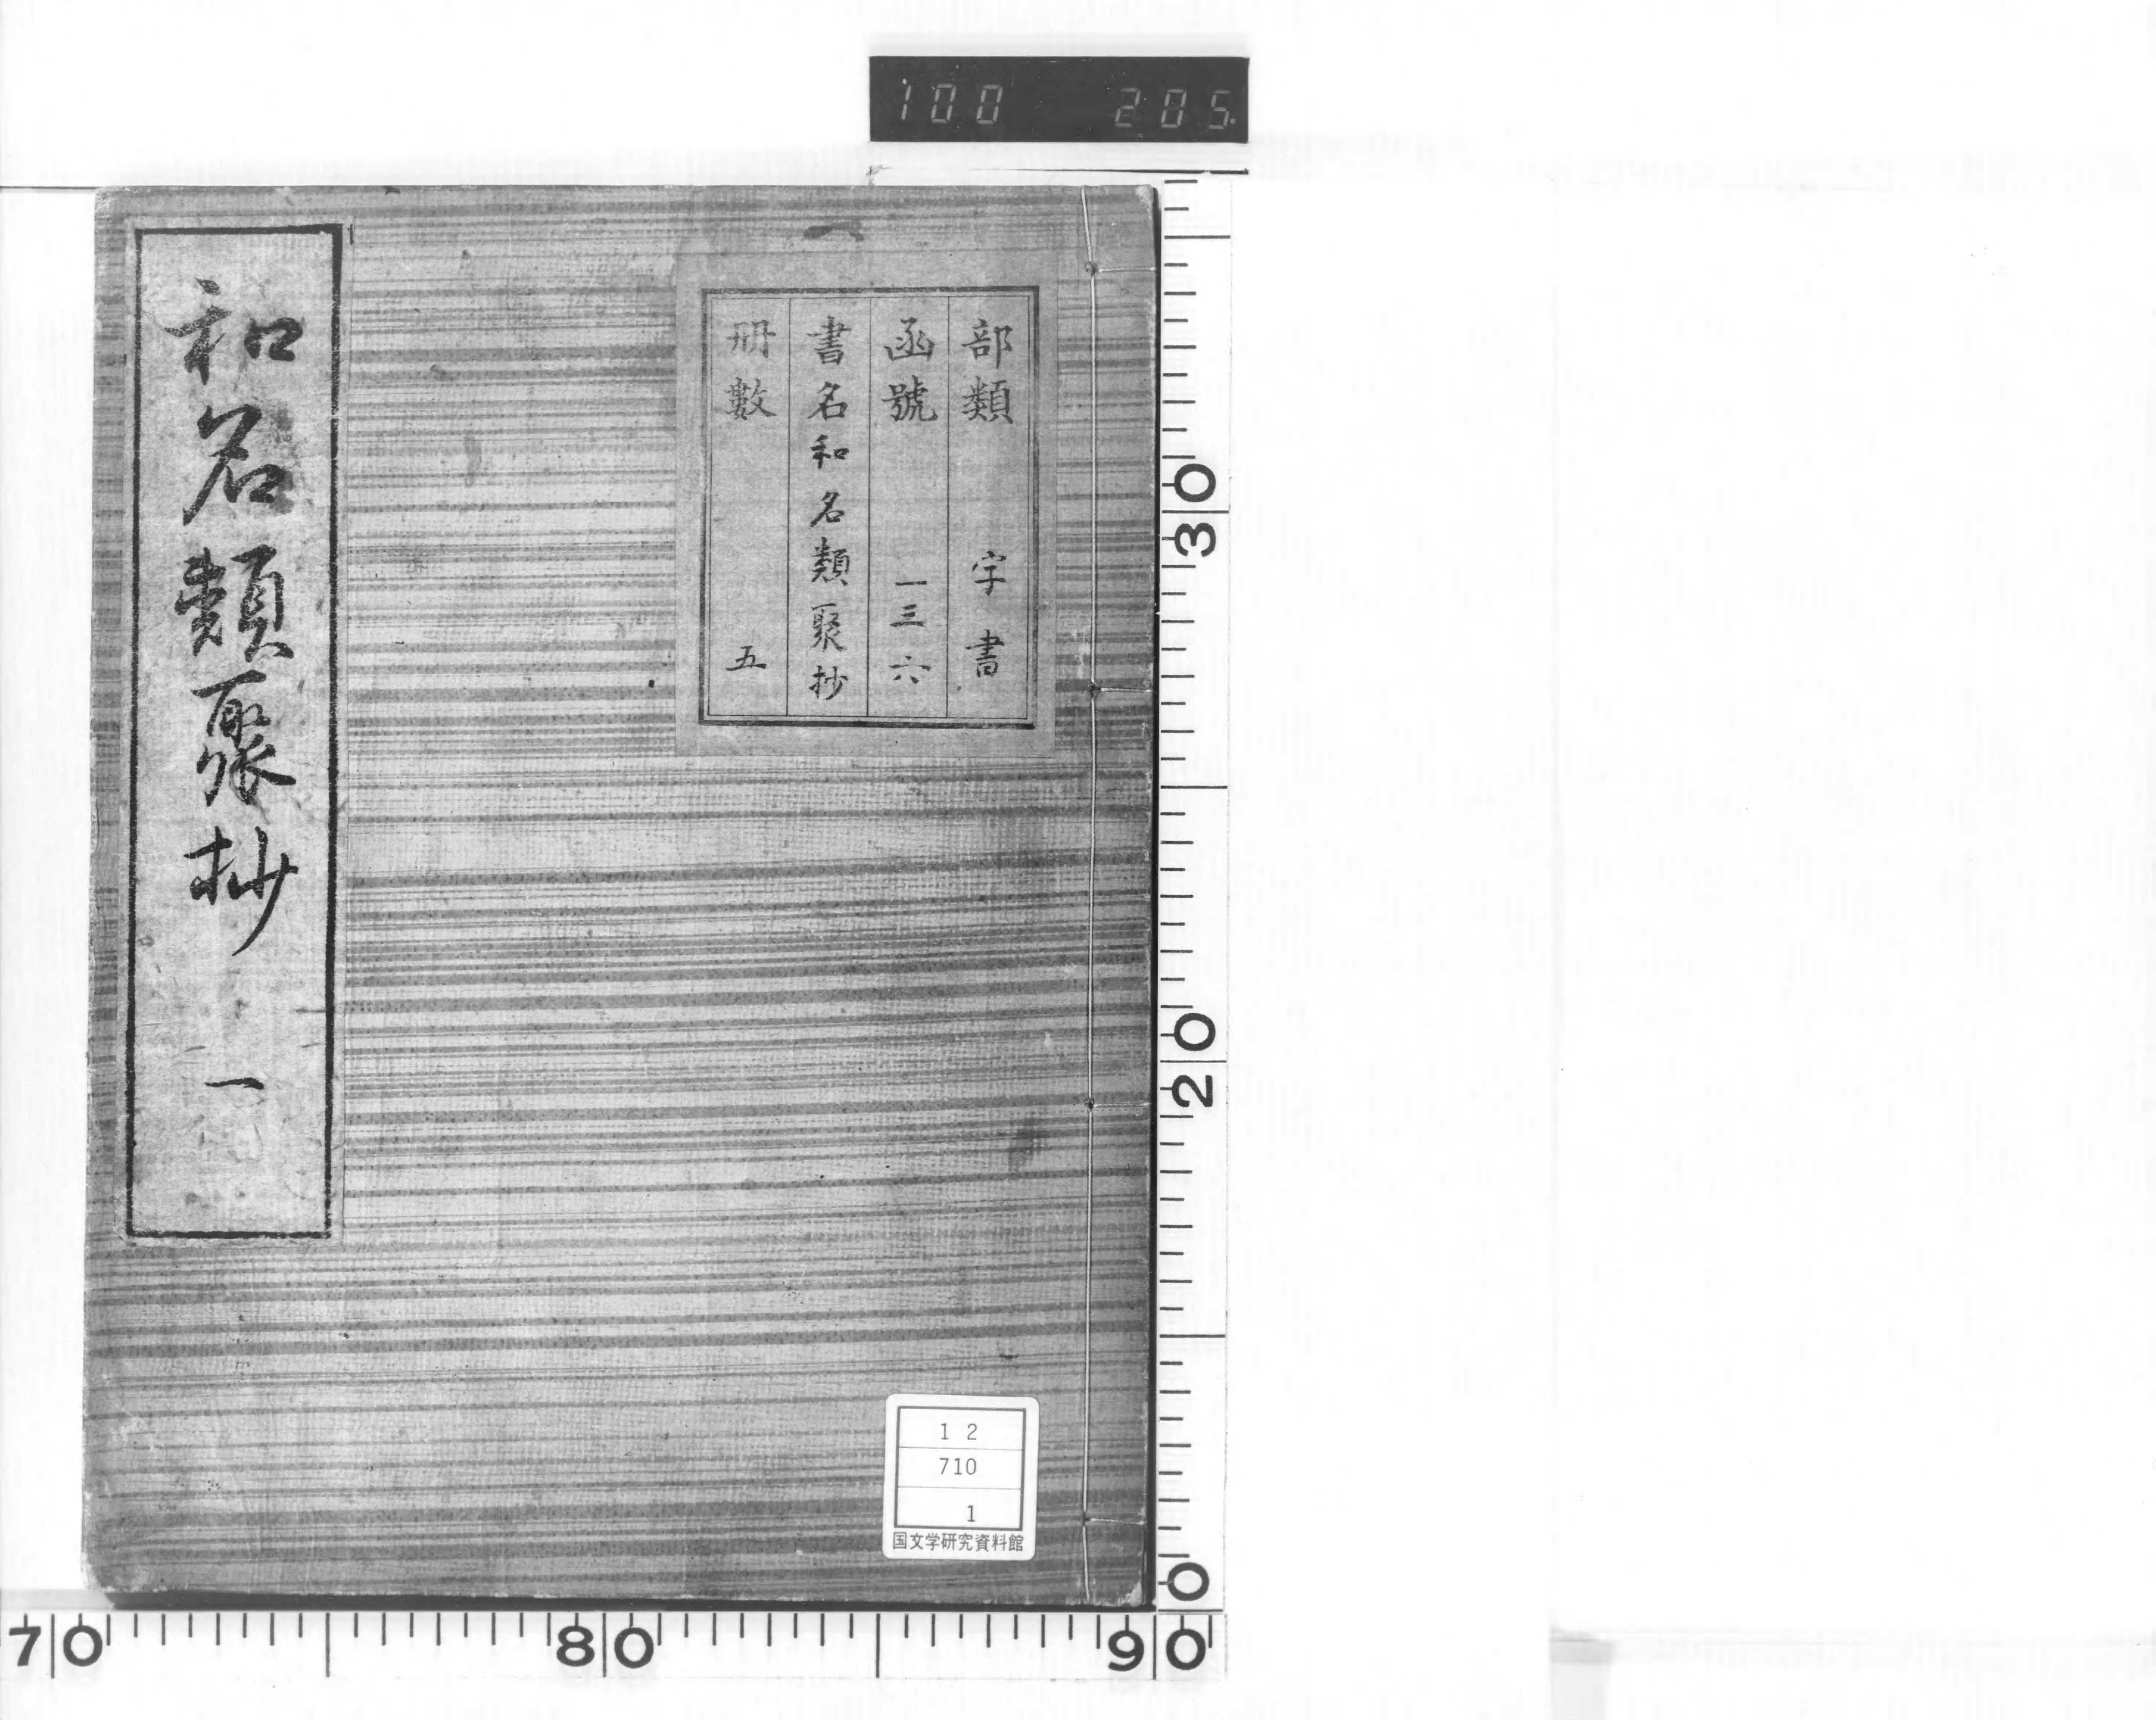 100 205.
一
部類 字書
函號 一三六
書名 和名類聚抄
冊數 五
和名類聚抄 一
12
710
1
国文学研究資料館
30
20
0
70 80 90